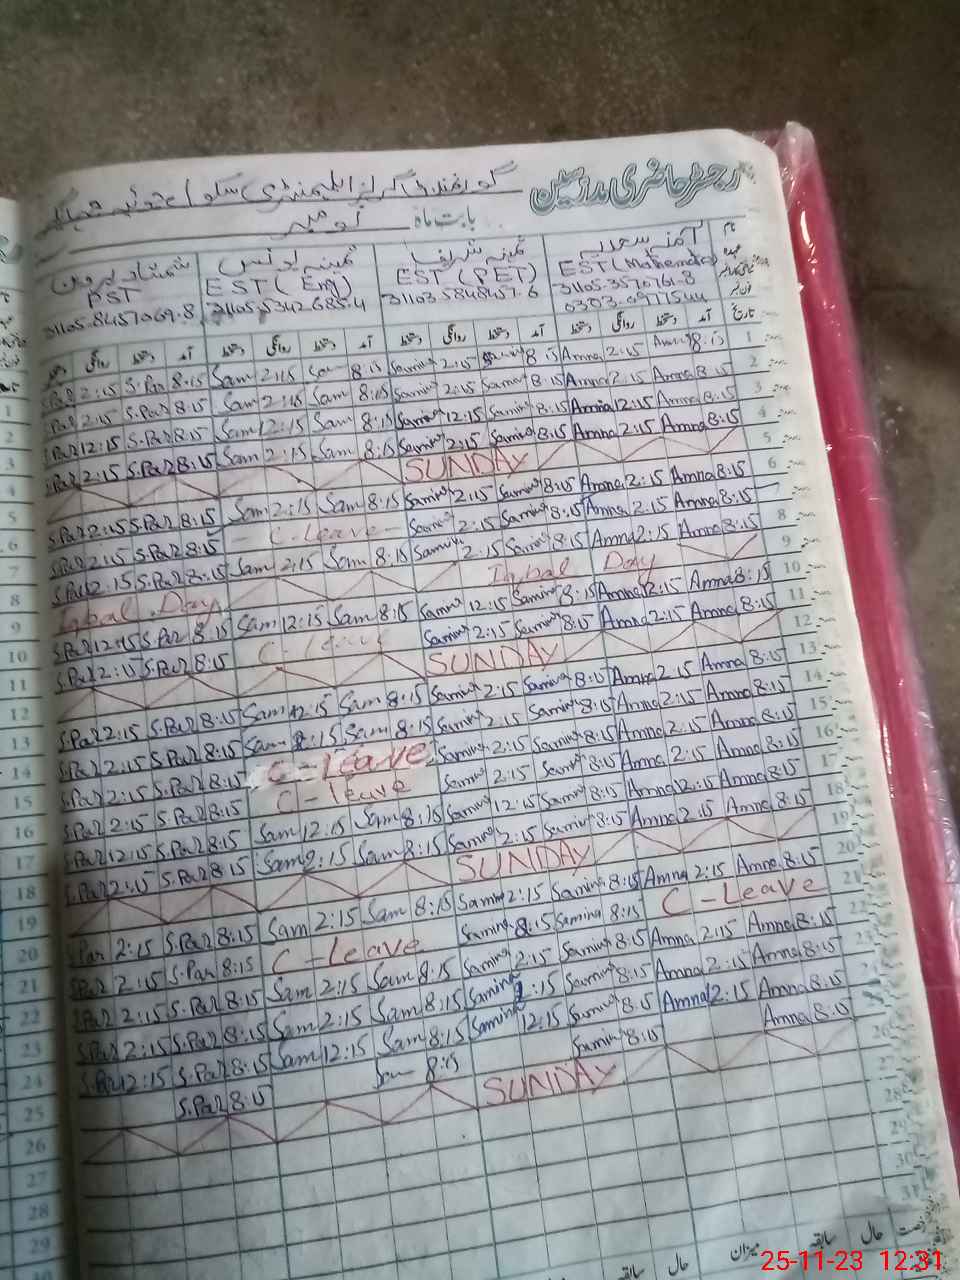 رجسٹر حاضری مدرسین
گورنمنٹ گرلز ایلیمنٹری سکول
بابت ماہ نومبر
نام آمنہ سعدیہ ثمینہ شریف ثمینہ یونس شمشاد پروین
عہدہ EST (Mathematics) EST (PET) EST (Eng) PST
31105-3570761-8 31103-5848457-6 31105-5342685-4 31105-8457069-8
0303-0977544
تاریخ آمد دستخط روانگی دستخط آمد دستخط روانگی دستخط آمد دستخط روانگی دستخط آمد دستخط روانگی
1 8:15 Amna 2:15 Amna 8:15 Samina 2:15 Samina 8:15 Sam 2:15 Sam 8:15 S.Par 2:15 S.Par
2 8:15 Amna 2:15 Amna 8:15 Samina 2:15 Samina 8:15 Sam 2:15 Sam 8:15 S.Par 2:15 S.Par
3 8:15 Amna 12:15 Amna 8:15 Samina 12:15 Samina 8:15 Sam 12:15 Sam 8:15 S.Par 12:15 S.Par
4 8:15 Amna 2:15 Amna 8:15 Samina 2:15 Samina 8:15 Sam 2:15 Sam 8:15 S.Par 2:15 S.Par
5 SUNDAY
6 8:15 Amna 2:15 Amna 8:15 Samina 2:15 Samina 8:15 Sam 2:15 Sam 8:15 S.Par 2:15 S.Par
7 8:15 Amna 2:15 Amna 8:15 Samina 2:15 Samina - C-leave - 8:15 S.Par 2:15 S.Par
8 8:15 Amna 2:15 Amna 8:15 Samina 2:15 Samina 8:15 Sam 2:15 Sam 8:15 S.Par 2:15 S.Par
9 Iqbal Day Iqbal Day
10 8:15 Amna 12:15 Amna 8:15 Samina 12:15 Samina 8:15 Sam 12:15 Sam 8:15 S.Par 12:15 S.Par
11 8:15 Amna 2:15 Amna 8:15 Samina 2:15 Samina C-leave 8:15 S.Par 2:15 S.Par
12 SUNDAY
13 8:15 Amna 2:15 Amna 8:15 Samina 2:15 Samina 8:15 Sam 2:15 Sam 8:15 S.Par 2:15 S.Par
14 8:15 Amna 2:15 Amna 8:15 Samina 2:15 Samina 8:15 Sam 2:15 Sam 8:15 S.Par 2:15 S.Par
15 8:15 Amna 2:15 Amna 8:15 Samina 2:15 Samina C-leave 8:15 S.Par 2:15 S.Par
16 8:15 Amna 2:15 Amna 8:15 Samina 2:15 Samina C-leave 8:15 S.Par 2:15 S.Par
17 8:15 Amna 12:15 Amna 8:15 Samina 12:15 Samina 8:15 Sam 12:15 Sam 8:15 S.Par 12:15 S.Par
18 8:15 Amna 2:15 Amna 8:15 Samina 2:15 Samina 8:15 Sam 2:15 Sam 8:15 S.Par 2:15 S.Par
19 SUNDAY
20 8:15 Amna 2:15 Amna 8:15 Samina 2:15 Samina 8:15 Sam 2:15 Sam 8:15 S.Par 2:15 S.Par
21 C-Leave 8:15 Samina 8:15 Samina C-leave 8:15 S.Par 2:15 S.Par
22 8:15 Amna 2:15 Amna 8:15 Samina 2:15 Samina 8:15 Sam 2:15 Sam 8:15 S.Par 2:15 S.Par
23 8:15 Amna 2:15 Amna 8:15 Samina 2:15 Samina 8:15 Sam 2:15 Sam 8:15 S.Par 2:15 S.Par
8:15 Amna 12:15 Amna 8:15 Samina 12:15 Samina 8:15 Sam 12:15 Sam 8:15 S.Par 12:15 S.Par
8:15 Amna 8:15 Samina 8:15 Sam 8:15 S.Par
26 SUNDAY
27
28
29
30
31
میزان سابقہ حال سابقہ حال
25-11-23 12:31